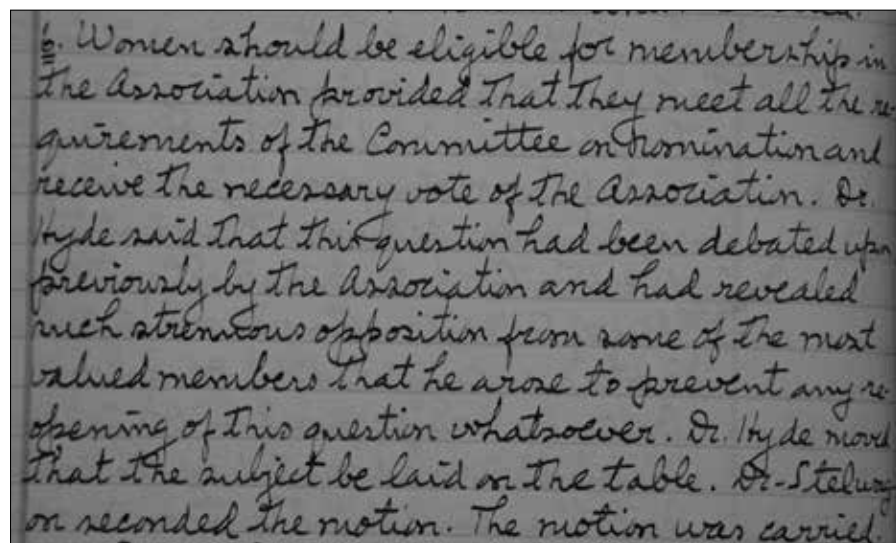 6. Women should be eligible for membership in
the Association provided that they meet all the re-
quirements of the Committee on nomination and
receive the necessary vote of the Association. Dr.
Hyde said that this question had been debated upon
previously by the Association and had revealed
such strenuous opposition from some of the most
valued members that he arose to prevent any re-
opening of this question whatsoever. Dr. Hyde moved
that the subject be laid on the table. Dr. Stelwag
on seconded the motion. The motion was carried.